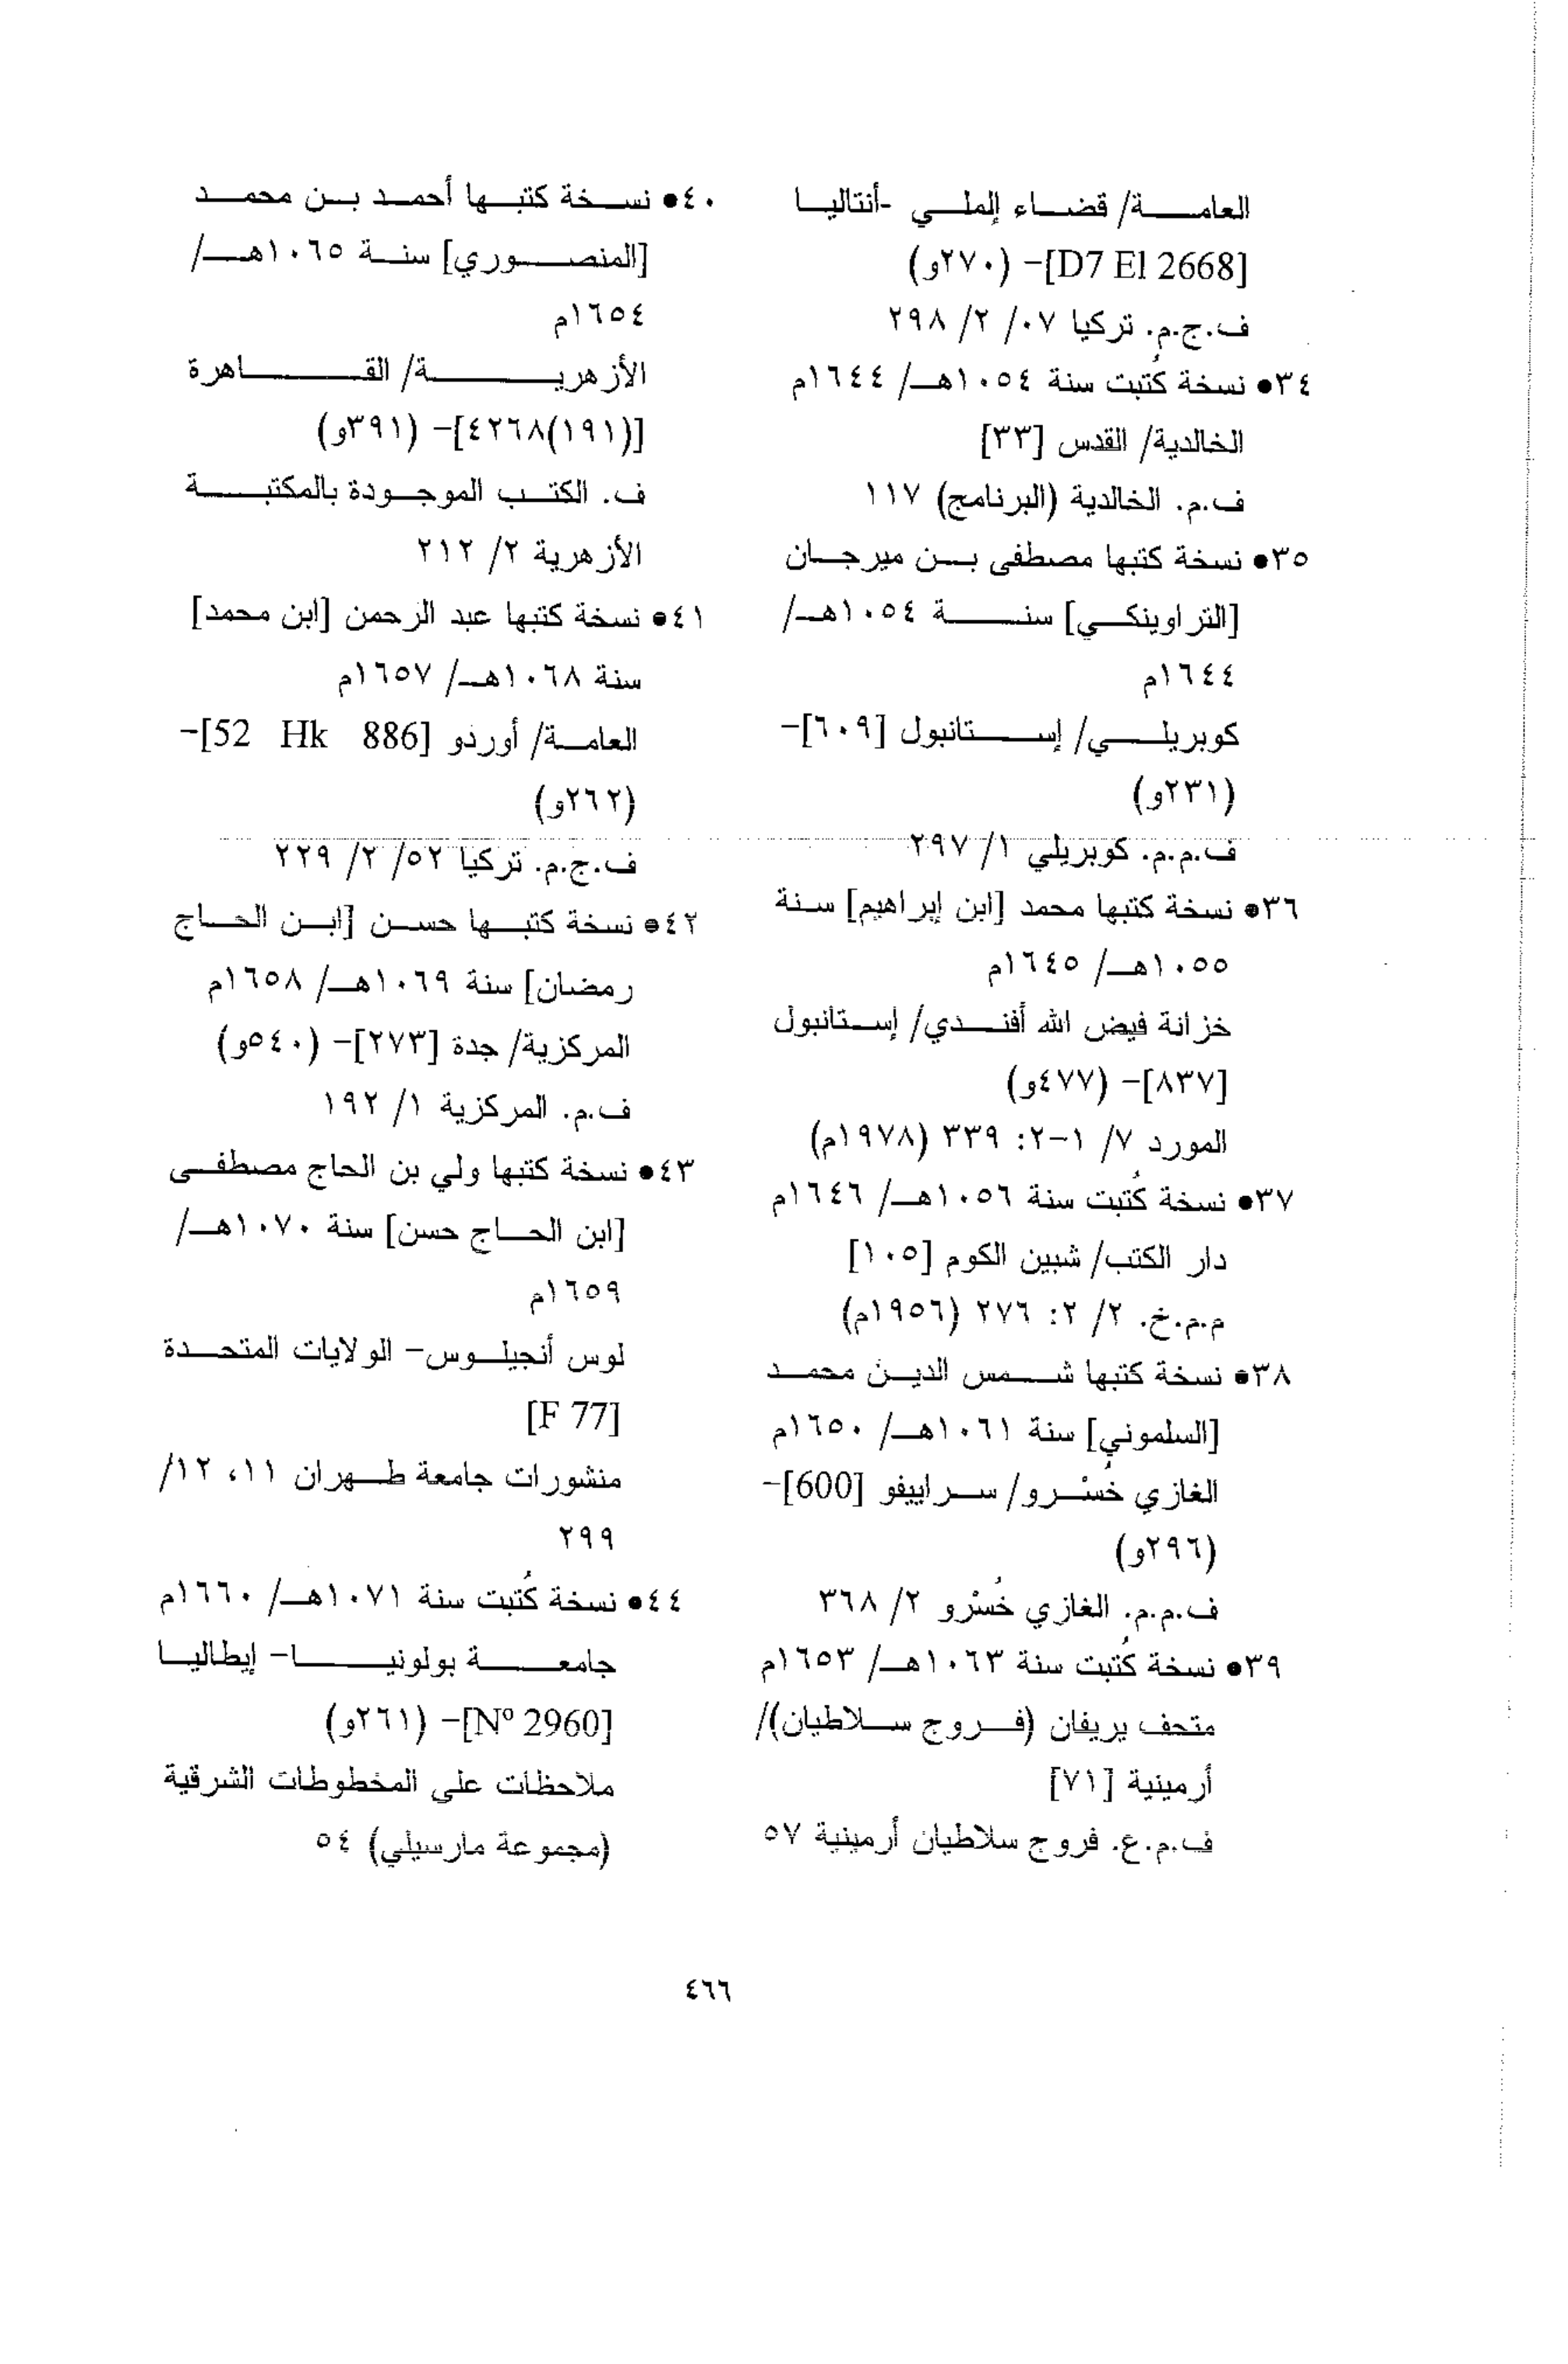 العامة/ قضاء إلملي -أنتاليا
[D7 El 2668]- (٢٧٠و)
ف.ج.م. تركيا ٠٧/ ٢/ ٢٩٨
٣٤• نسخة كُتبت سنة ١٠٥٤هـ/ ١٦٤٤م
الخالدية/ القدس [٣٣]
ف.م. الخالدية (البرنامج) ١١٧
٣٥• نسخة كتبها مصطفى بن ميرجان
[التراوينكي] سنة ١٠٥٤هـ/
١٦٤٤م
كوبريلي/ إستانبول [٦٠٩]-
(٢٣١و)
ف.م.م. كوبريلي ١/ ٢٩٧
٣٦• نسخة كتبها محمد [ابن إبراهيم] سنة
١٠٥٥هـ/ ١٦٤٥م
خزانة فيض الله أفندي/ إستانبول
[٨٣٧]- (٤٧٧و)
المورد ٧/ ١-٢: ٣٣٩ (١٩٧٨م)
٣٧• نسخة كُتبت سنة ١٠٥٦هـ/ ١٦٤٦م
دار الكتب/ شبين الكوم [١٠٥]
م.م.خ. ٢/ ٢: ٢٧٦ (١٩٥٦م)
٣٨• نسخة كتبها شمس الدين محمد
[السلموني] سنة ١٠٦١هـ/ ١٦٥٠م
الغازي خُسْرو/ سراييفو [600]-
(٢٩٦و)
ف.م.م. الغازي خُسْرو ٢/ ٣٦٨
٣٩• نسخة كُتبت سنة ١٠٦٣هـ/ ١٦٥٣م
متحف يريفان (فروج سلاطيان)/
أرمينية [٧١]
ف.م.ع. فروج سلاطيان أرمينية ٥٧
٤٠• نسخة كتبها أحمد بن محمد
[المنصوري] سنة ١٠٦٥هـ/
١٦٥٤م
الأزهرية/ القاهرة
[(١٩١)٤٢٦٨]- (٣٩١و)
ف. الكتب الموجودة بالمكتبة
الأزهرية ٢/ ٢١٢
٤١• نسخة كتبها عبد الرحمن [ابن محمد]
سنة ١٠٦٨هـ/ ١٦٥٧م
العامة/ أوردو [52 Hk 886]-
(٢٦٢و)
ف.ج.م. تركيا ٥٢/ ٢/ ٢٢٩
٤٢• نسخة كتبها حسن [ابن الحاج
رمضان] سنة ١٠٦٩هـ/ ١٦٥٨م
المركزية/ جدة [٢٧٣]- (٥٤٠و)
ف.م. المركزية ١/ ١٩٢
٤٣• نسخة كتبها ولي بن الحاج مصطفى
[ابن الحاج حسن] سنة ١٠٧٠هـ/
١٦٥٩م
لوس أنجيلوس- الولايات المتحدة
[F 77]
منشورات جامعة طهران ١١، ١٢/
٢٩٩
٤٤• نسخة كُتبت سنة ١٠٧١هـ/ ١٦٦٠م
جامعة بولونيا- إيطاليا
[Nº 2960]- (٢٦١و)
ملاحظات على المخطوطات الشرقية
(مجموعة مارسيلي) ٥٤
٤٦٦